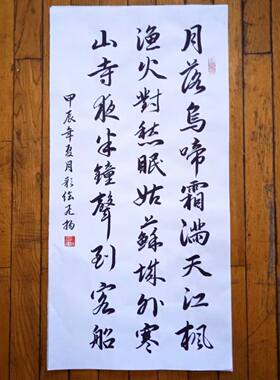 月落烏啼霜滿天江楓
漁火對愁眠姑蘇城外寒
山寺夜半鐘聲到客船
甲辰年夏月彩繪元楊